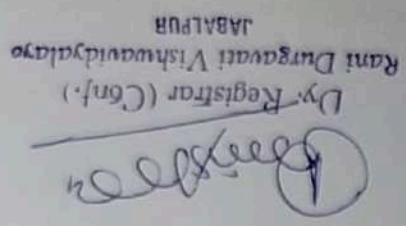 Dy. Registrar (Conf.)
Rani Durgavati Vishwavidyalaya
JABALPUR